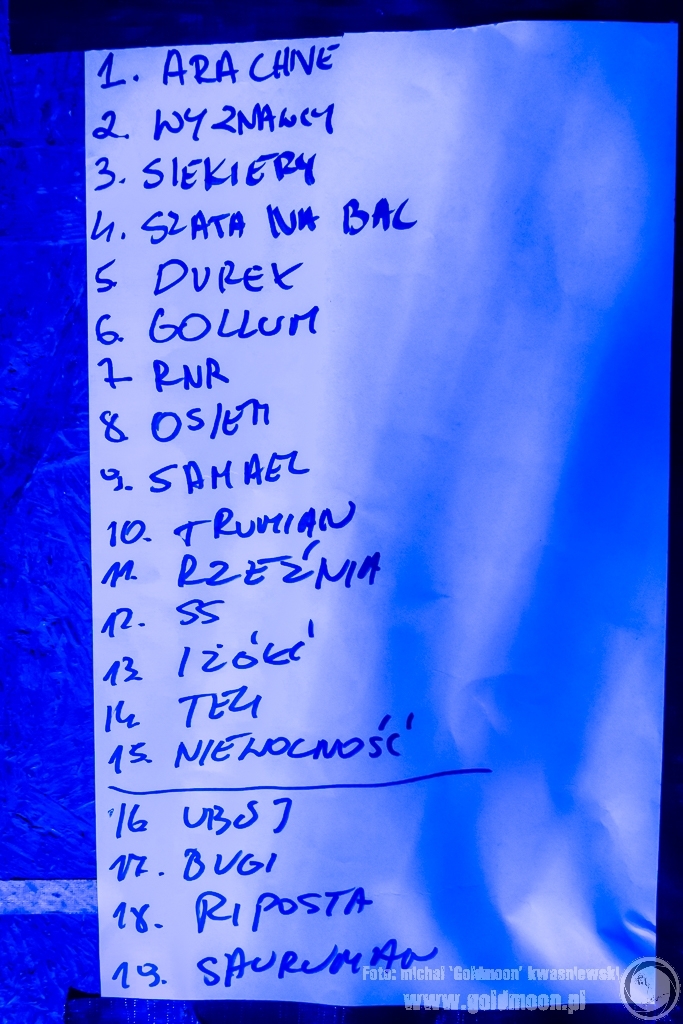 1. ARACHNE
2. WYZNAWCY
3. SIEKIERY
4. SZATA NA BAL
5 DUREX
6. GOLLUM
7 RNR
8 OSIEM
9. SAMAEL
10. TRUMIAN
11. RZEŹNIA
12. SS
13.
14.
15. NIEMOCNOŚĆ
16 UBOJ
17. BUGI
18. RIPOSTA
19. SAURUMAN
Foto: michał 'Goldmoon' kwaśniewski
www.goldmoon.pl